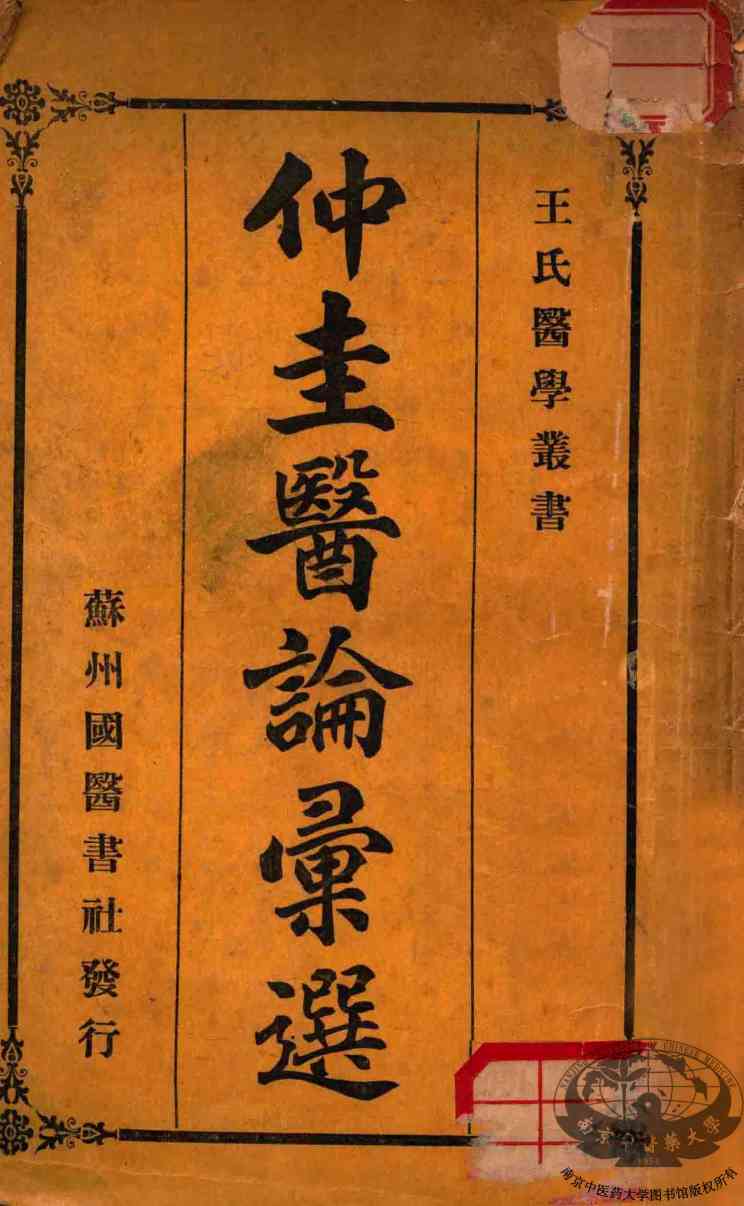 王氏醫學叢書
仲圭醫論彙選
蘇州國醫書社發行
南京中醫藥大學
南京中医药大学图书馆版权所有